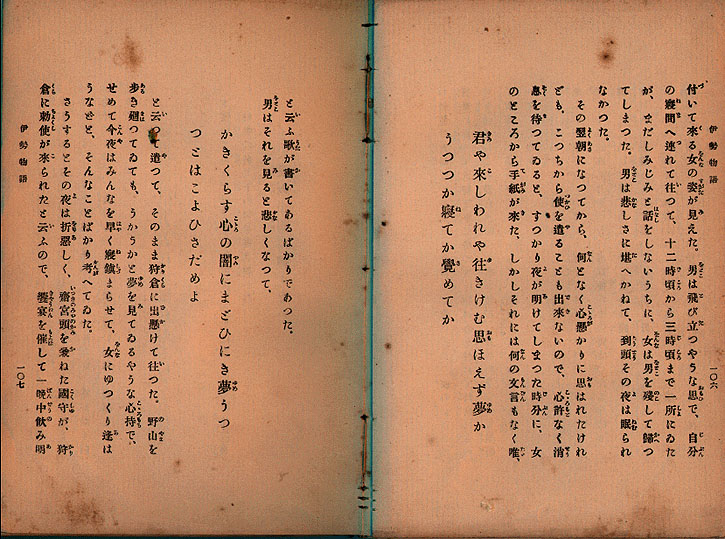 伊勢物語
一〇六
付いて來る女の姿が見えた。男は飛び立つやうな思で、自分
の寢間へ連れて往つて、十二時頃から三時頃まで一所にゐた
が、まだしみじみと話をしないうちに、女は男を殘して歸つ
てしまつた。男は悲しさに堪へかねて、到頭その夜は眠られ
なかつた。
その翌朝になつてから、何となく心懸かりに思はれたけれ
ども、こつちから使を遣ることも出來ないので、心許なく消
息を待つてゐると、すつかり夜が明けてしまつた時分に、女
のところから手紙が來た、しかしそれには何の文言もなく唯、
君や來しわれや往きけむ思ほえず夢か
うつつか寢てか覺めてか
と云ふ歌が書いてあるばかりであつた。
男はそれを見ると悲しくなつて、
かきくらす心の闇にまどひにき夢うつ
つとはこよひさだめよ
と云つて遣つて、そのまま狩倉に出懸けて往つた。野山を
歩き廻つてゐても、うかうかと夢を見てゐるやうな心持で、
せめて今夜はみんなを早く寢鎭まらせて、女にゆつくり逢は
うなぞと、そんなことばかり考へてゐた。
さうするとその夜は折惡しく、齋宮頭を兼ねた國守が、狩
倉に勅使が來られたと云ふので、饗宴を催して一晩中飲み明
伊勢物語
一〇七